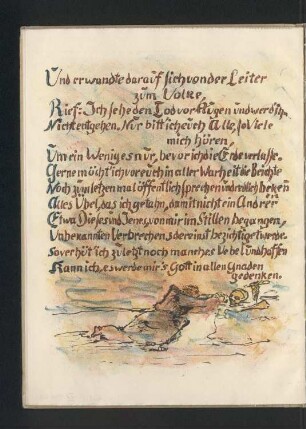 Und er wandte darauf sich von der Leiter
zum Volke,
Rief: Ich sehe den Tod vor Augen und werd ihm
Nicht entgehen. Nur bitt ich euch Alle, so viele
mich hören,
Um ein Weniges nur, bevor ich die Erde verlasse.
Gerne möcht ich vor euch in aller Warheit die Beichte
Noch zu letzen mal öffentlich sprechen und redlich bekennen
Alles Übel, das ich gethan, damit nicht ein Andrer
Etwa Dieses und Jenes, von mir im Stillen begangen,
Unbekannten Verbrechens dereinst bezichtiget werde.
So verhüt ich zuletzt noch manches Uebel, und hoffen
Kann ich, es werde mir's Gott in allen Gnaden
gedenken.